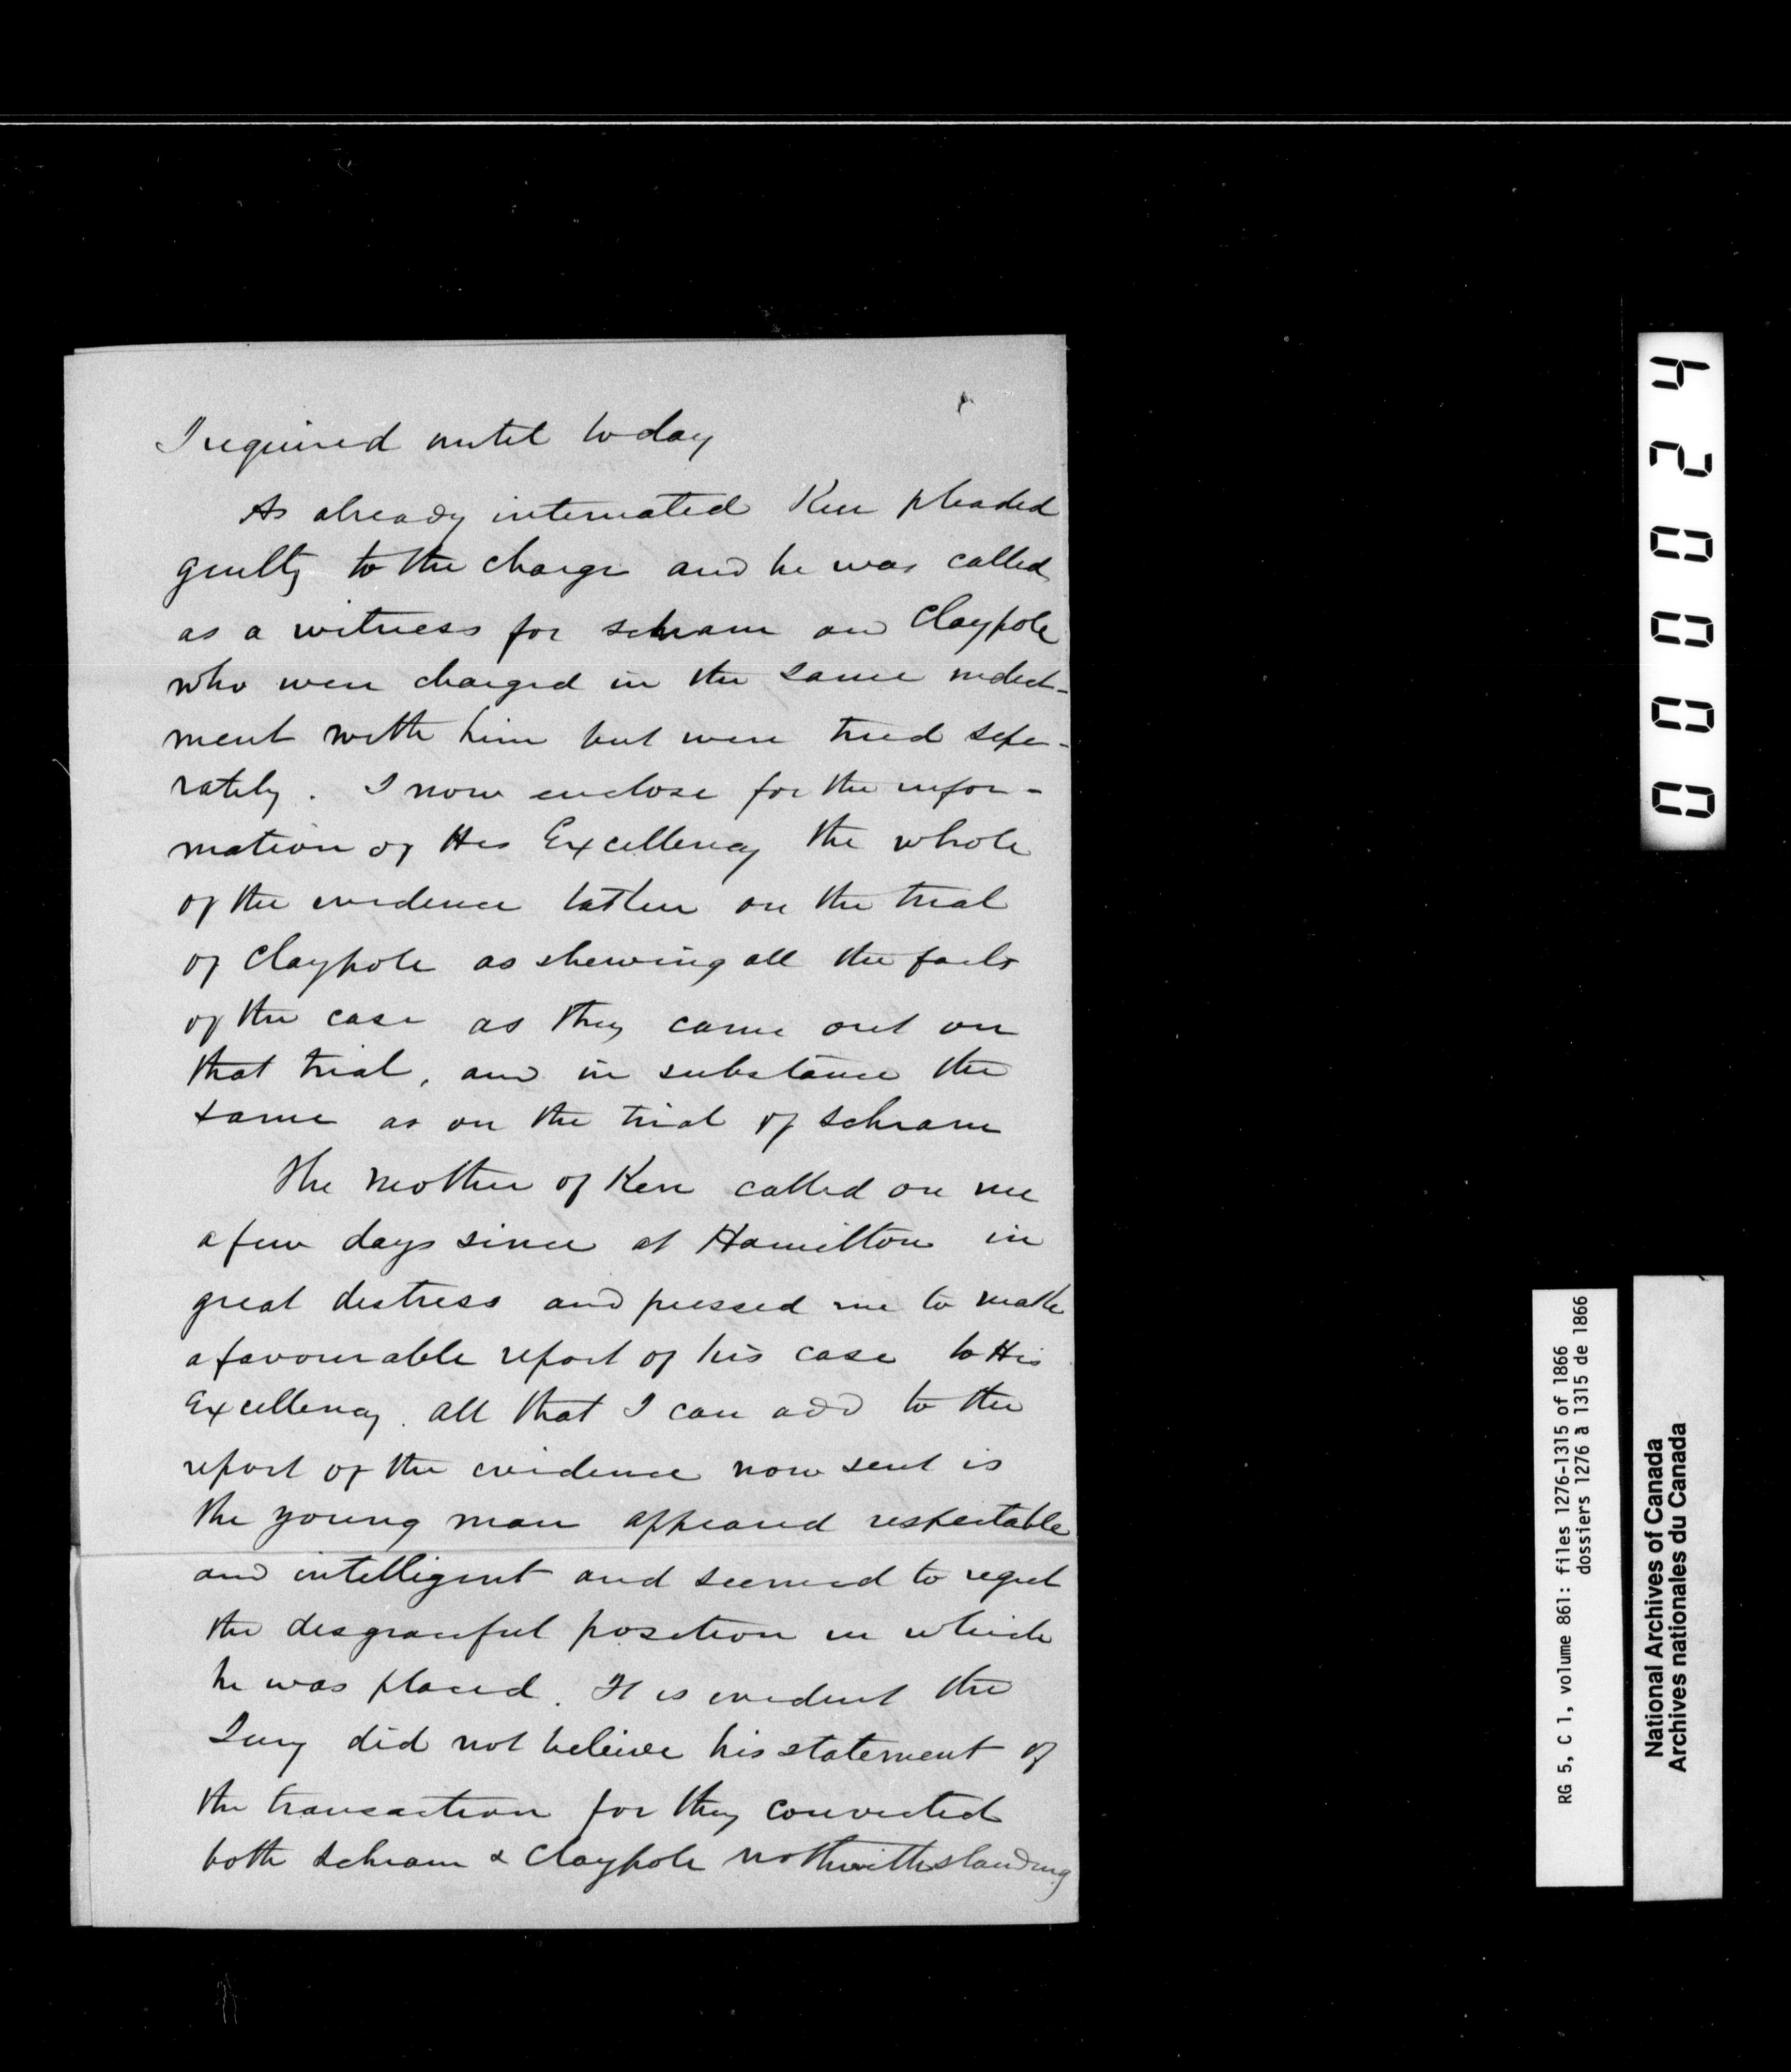 I required until today
As already intimated Kerr pleaded
guilty to the charge and he was called
as a witness for Schram and Claypole
who were charged in the same indict-
ment with him but were tried sepe-
rately. I now enclose for the infor-
mation of His Excellency the whole
of the evidence taken on the trial
of Claypole as shewing all the facts
of the case as they came out on
that trial, and in substance the
same as on the trial of Schram
The mother of Kerr called on me
a few days since at Hamilton in
great distress and pressed me to make
a favourable report of his case to His
Excellency. All that I can add to the
report of the evidence now sent is
the young man appeared respectable
and intelligent and seemed to regret
the disgraceful position in which
he was placed. It is evident the
Jury did not beleive his statement of
the transaction for they convicted
both Schram & Claypole notwithstanding
42000
RG 5, C 1, volume 861: files 1276-1315 of 1866
dossiers 1276 à 1315 de 1866
National Archives of Canada
Archives nationales du Canada